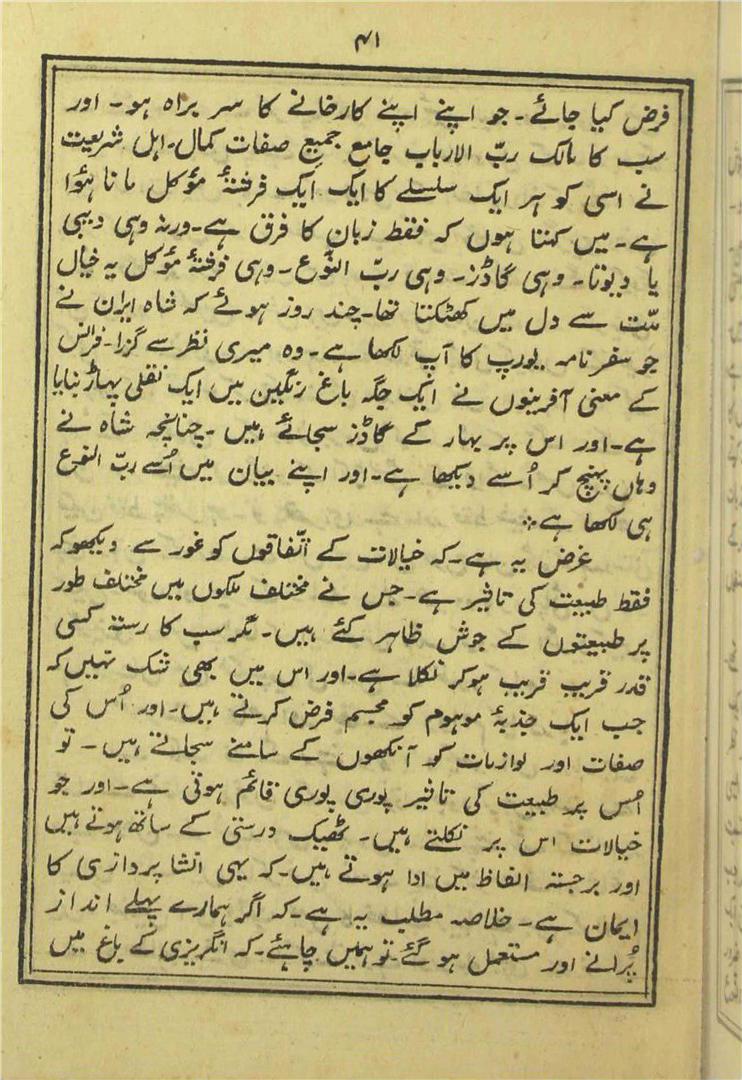 ۴۱
فرض کیا جائے۔ جو اپنے اپنے کارخانے کا سر براہ ہو۔ اور
سب کا مالک ربّ الارباب جامع جمیع صفات کمال۔ اہل شریعت
نے اسی کو ہر ایک سلسلے کا ایک ایک فرشتۂ مؤکل مانا ہؤا
ہے۔ میں کہتا ہوں کہ فقط زبان کا فرق ہے۔ ورنہ وہی دیبی
یا دیوتا۔ وہی گاڈز۔ وہی ربّ النّوع۔ وہی فرشتۂ مؤکل یہ خیال
مدّت سے دل میں کھٹکتا تھا۔ چند روز ہوئے کہ شاہ ایران نے
جو سفرنامہ یورپ کا آپ لکھا ہے۔ وہ میری نظر سے گزرا۔ فرانس
کے معنی آفرینوں نے ایک جگہ باغ رنگین میں ایک نقلی پہاڑ بنایا
ہے۔ اور اس پر بہار کے گاڈز سجائے ہیں۔ چنانچہ شاہ نے
وہاں پہنچ کر اُسے دیکھا ہے۔ اور اپنے بیان میں اُسے ربّ النوع
ہی لکھا ہے؞
غرض یہ ہے۔ کہ خیالات کے اتّفاقوں کو غور سے دیکھو کہ
فقط طبیعت کی تاثیر ہے۔ جس نے مختلف ملکوں میں مختلف طور
پر طبیعتوں کے جوش ظاہر کئے ہیں۔ مگر سب کا رستہ کسی
قدر قریب قریب ہوکر نکلا ہے۔ اور اس میں بھی شک نہیں کہ
جب ایک جذبۂ موہوم کو مجسم فرض کرتے ہیں۔ اور اُس کی
صفات اور لوازمات کو آنکھوں کے سامنے سجاتے ہیں۔ تو
اُس پر طبیعت کی تاثیر پوری پوری قائم ہوتی ہے۔ اور جو
خیالات اس پر نکلتے ہیں۔ ٹھیک درستی کے ساتھ ہوتے ہیں
اور برجستہ الفاظ میں ادا ہوتے ہیں۔ کہ یہی انشا پردازی کا
ایمان ہے۔ خلاصہ مطلب یہ ہے۔ کہ اگر ہمارے پہلے انداز
پُرانے اور مستعمل ہو گئے۔ تو ہمیں چاہئے۔ کہ انگریزی کے باغ میں